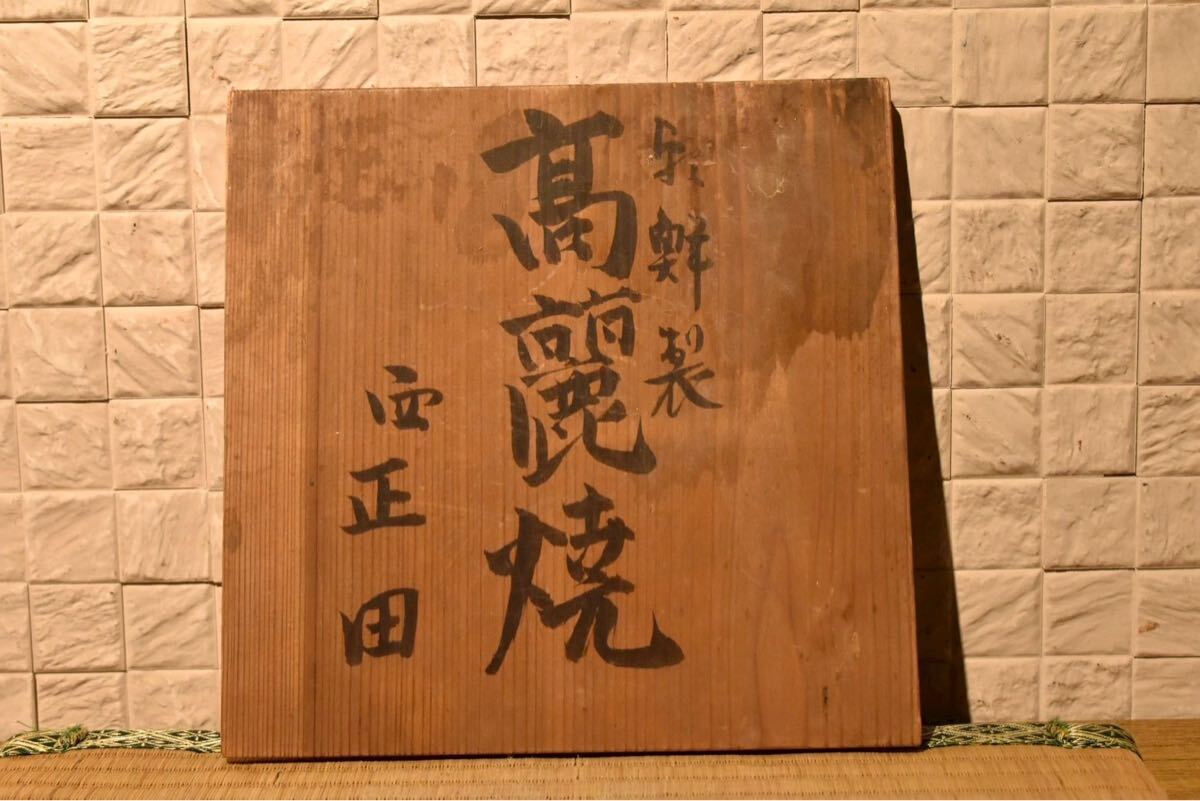 朝鮮製
高麗焼
西正田